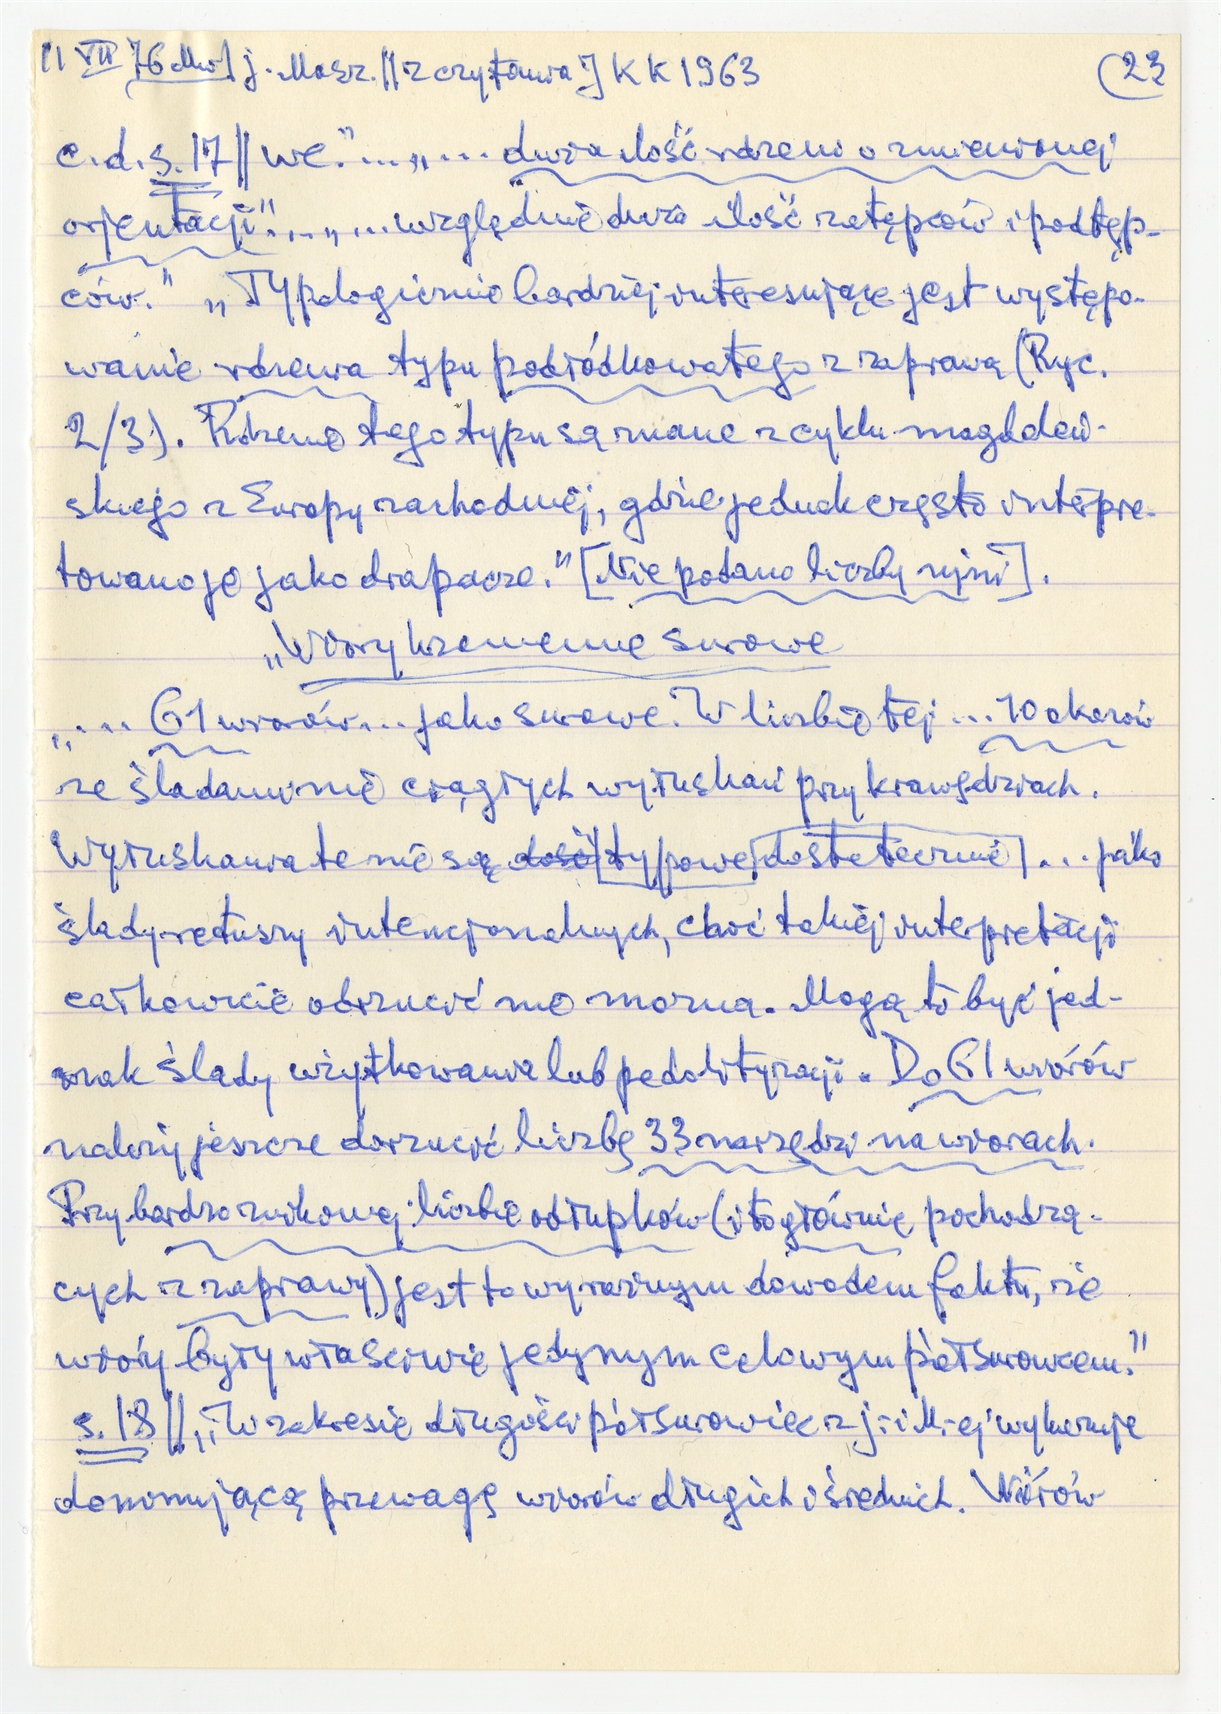 11 VII 76 Mw] j. Masz. || z czytania J KK 1963 (23
c.d. s. 17 || we." ... „ ... duża ilość rdzeni o zmienionej
orjentacji". „ ... względnie duża ilość zatępców i podtęp-
ców." „Typologicznie bardziej interesujące jest występo-
wanie rdzenia typu podłódkowatego z zaprawą (Ryc.
2/3). Rdzenie tego typu są znane z cyklu magdaleń-
skiego z Europy zachodniej, gdzie jednak często interpre-
towano je jako drapacze." [Nie podano liczby rycin].
„Wióry krzemienne surowe
„ ... 61 wiórów ... jako surowe. W liczbie tej ... 10 okazów
ze śladami nie ciągłych wyłuskań przy krawędziach.
Wyłuskania te nie są dość [typowe] dostatecznie] ... jako
ślady retuszy intencjonalnych, choć takiej interpretacji
całkowicie odrzucić nie można. Mogą to być jed-
nak ślady użytkowania lub pedolityzacji. Do 61 wiórów
należy jeszcze dorzucić liczbę 33 narzędzi na wiórach.
Przy bardzo znikomej liczbie odłupków (i to głównie pochodzą-
cych z zaprawy) jest to wyraźnym dowodem faktu, że
wióry były właściwie jedynym celowym półsurowcem."
s. 18 || „W zakresie długości półsurowiec z j-i M-ej wykazuje
dominującą przewagę wiórów długich i średnich. Wiórów